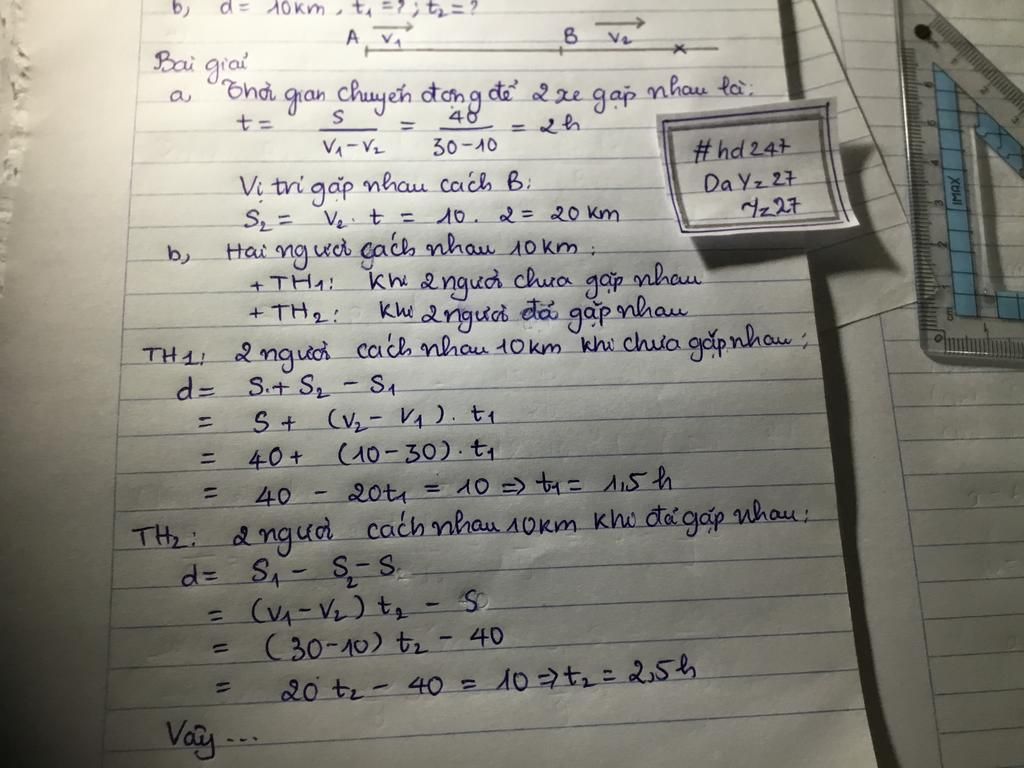 b, d = 10km, t1 = ?; t2 = ?
A v1 B v2
Bài giải
a, Thời gian chuyển động để 2 xe gặp nhau là:
t = S / (V1 - V2) = 40 / (30 - 10) = 2h
#hd247
DaYz27
Yz27
Vị trí gặp nhau cách B:
S2 = V2 . t = 10 . 2 = 20 km
b, Hai người cách nhau 10km:
+ TH1: Khi 2 người chưa gặp nhau
+ TH2: Khi 2 người đã gặp nhau
TH1: 2 người cách nhau 10km khi chưa gặp nhau:
d = S + S2 - S1
= S + (V2 - V1) . t1
= 40 + (10 - 30) . t1
= 40 - 20t1 = 10 => t1 = 1,5h
TH2: 2 người cách nhau 10km khi đã gặp nhau:
d = S1 - S2 - S
= (V1 - V2) t2 - S
= (30 - 10) t2 - 40
= 20 t2 - 40 = 10 => t2 = 2,5h
Vậy ...